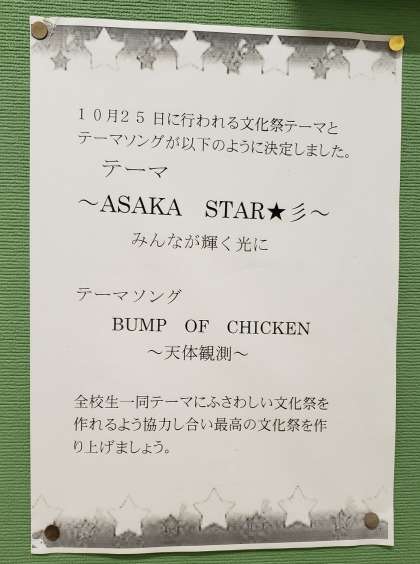 10月25日に行われる文化祭テーマと
テーマソングが以下のように決定しました。
テーマ
～ASAKA STAR★彡～
みんなが輝く光に
テーマソング
BUMP OF CHICKEN
～天体観測～
全校生一同テーマにふさわしい文化祭を
作れるよう協力し合い最高の文化祭を作
り上げましょう。